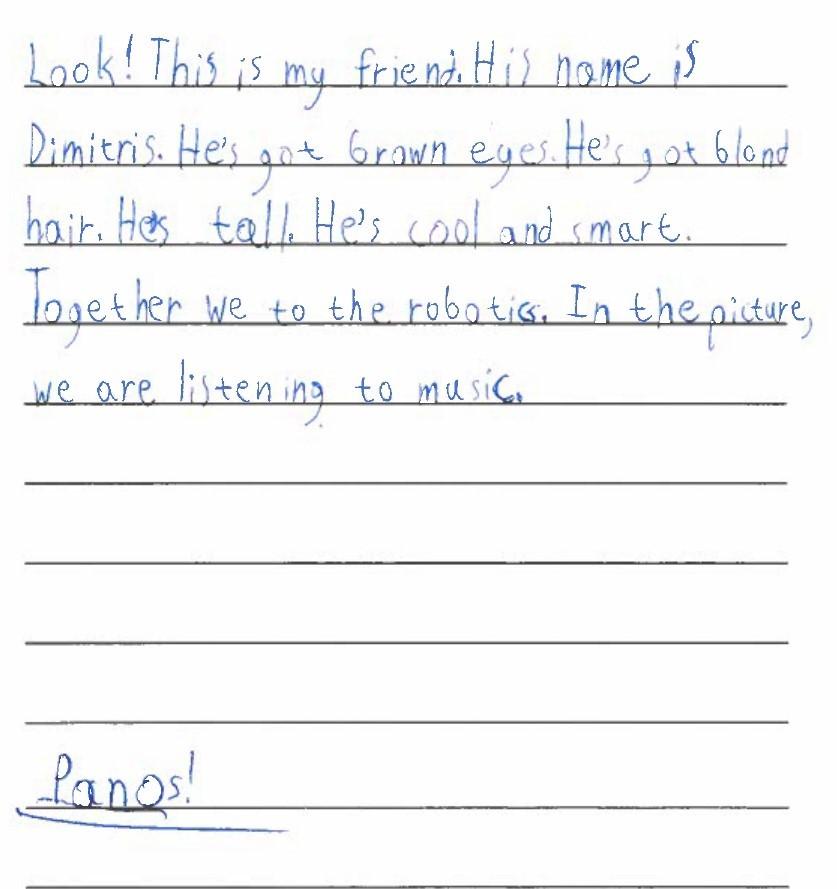 Look! This is my friend. His name is
Dimitris. He's got brown eyes. He's got blond
hair. He's tall. He's cool and smart.
Together we to the robotics. In the picture,
we are listening to music.
Panos!